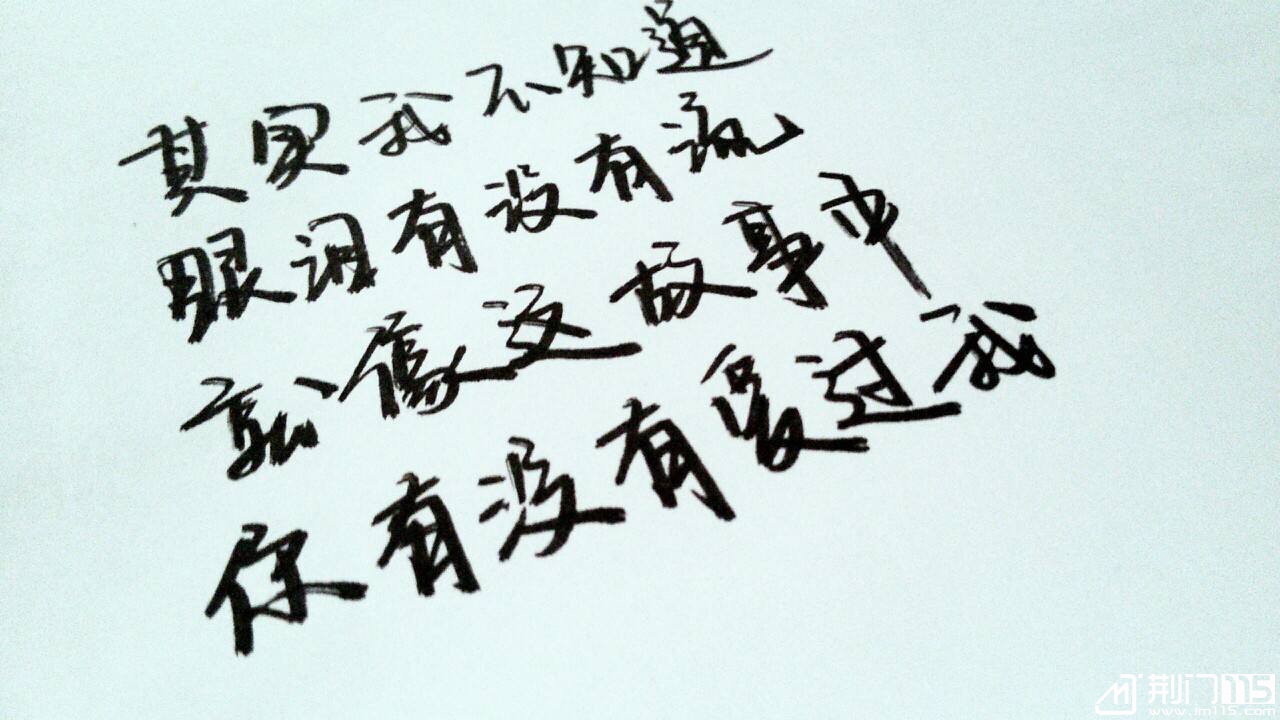 其实我不知道
眼泪有没有流
就像这故事中
你有没有爱过我
荆门115
www.jm115.com